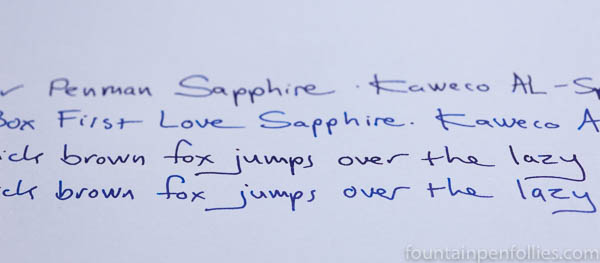 Penman Sapphire · Kaweco AL-Sp
Box First Love Sapphire. Kaweco A
ick brown fox jumps over the lazy
ick brown fox jumps over the lazy
fountainpenfollies.com